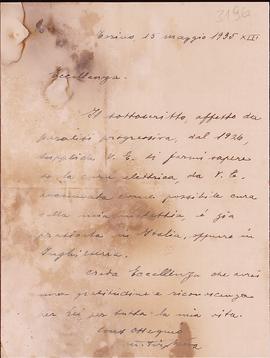 3196
Torino 15 maggio 1935 XIII
Eccellenza.
Il sottoscritto, affetto da
paralisi progressiva, dal 1926,
supplica V. E. di farmi sapere
se la cura elettrica, da V. E.
come possibile cura
alla mia malattia, è già
praticata in Italia, oppure in
Inghilterra.
Creda Eccellenza che avrei
una gratitudine e riconoscenza
per Lei per tutta la mia vita.
Con Ossequi